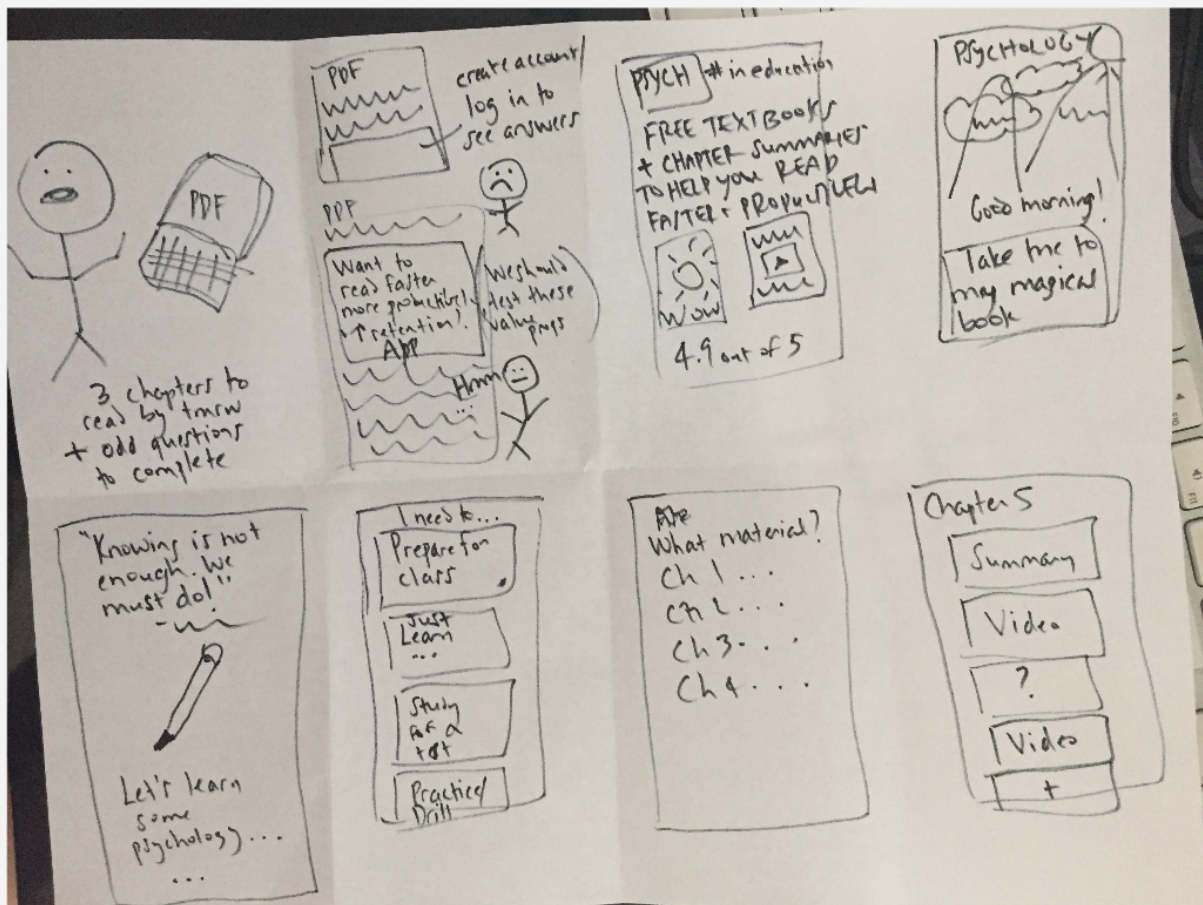 PDF
3 chapters to
read by tmrw
+ odd questions
to complete
PDF
create account/
log in to
see answers
PDF
Want to
read faster
more productively
↑ retention?
App
We should
test these
value props
Hmm
...
PSYCH
# in education
FREE TEXTBOOKS
+ CHAPTER SUMMARIES
TO HELP YOU READ
FASTER + PRODUCTIVELY
WOW
4.9 out of 5
PSYCHOLOGY
Good morning!
Take me to
my magical
book
"Knowing is not
enough. We
must do!"
Let's learn
some
psychology...
...
I need to...
Prepare for
class
Just
Learn
...
Study
for a
test
Practice/
Drill
What material?
Ch 1 ...
Ch 2 ...
Ch 3 ...
Ch 4 ...
Chapter 5
Summary
Video
?
Video
+